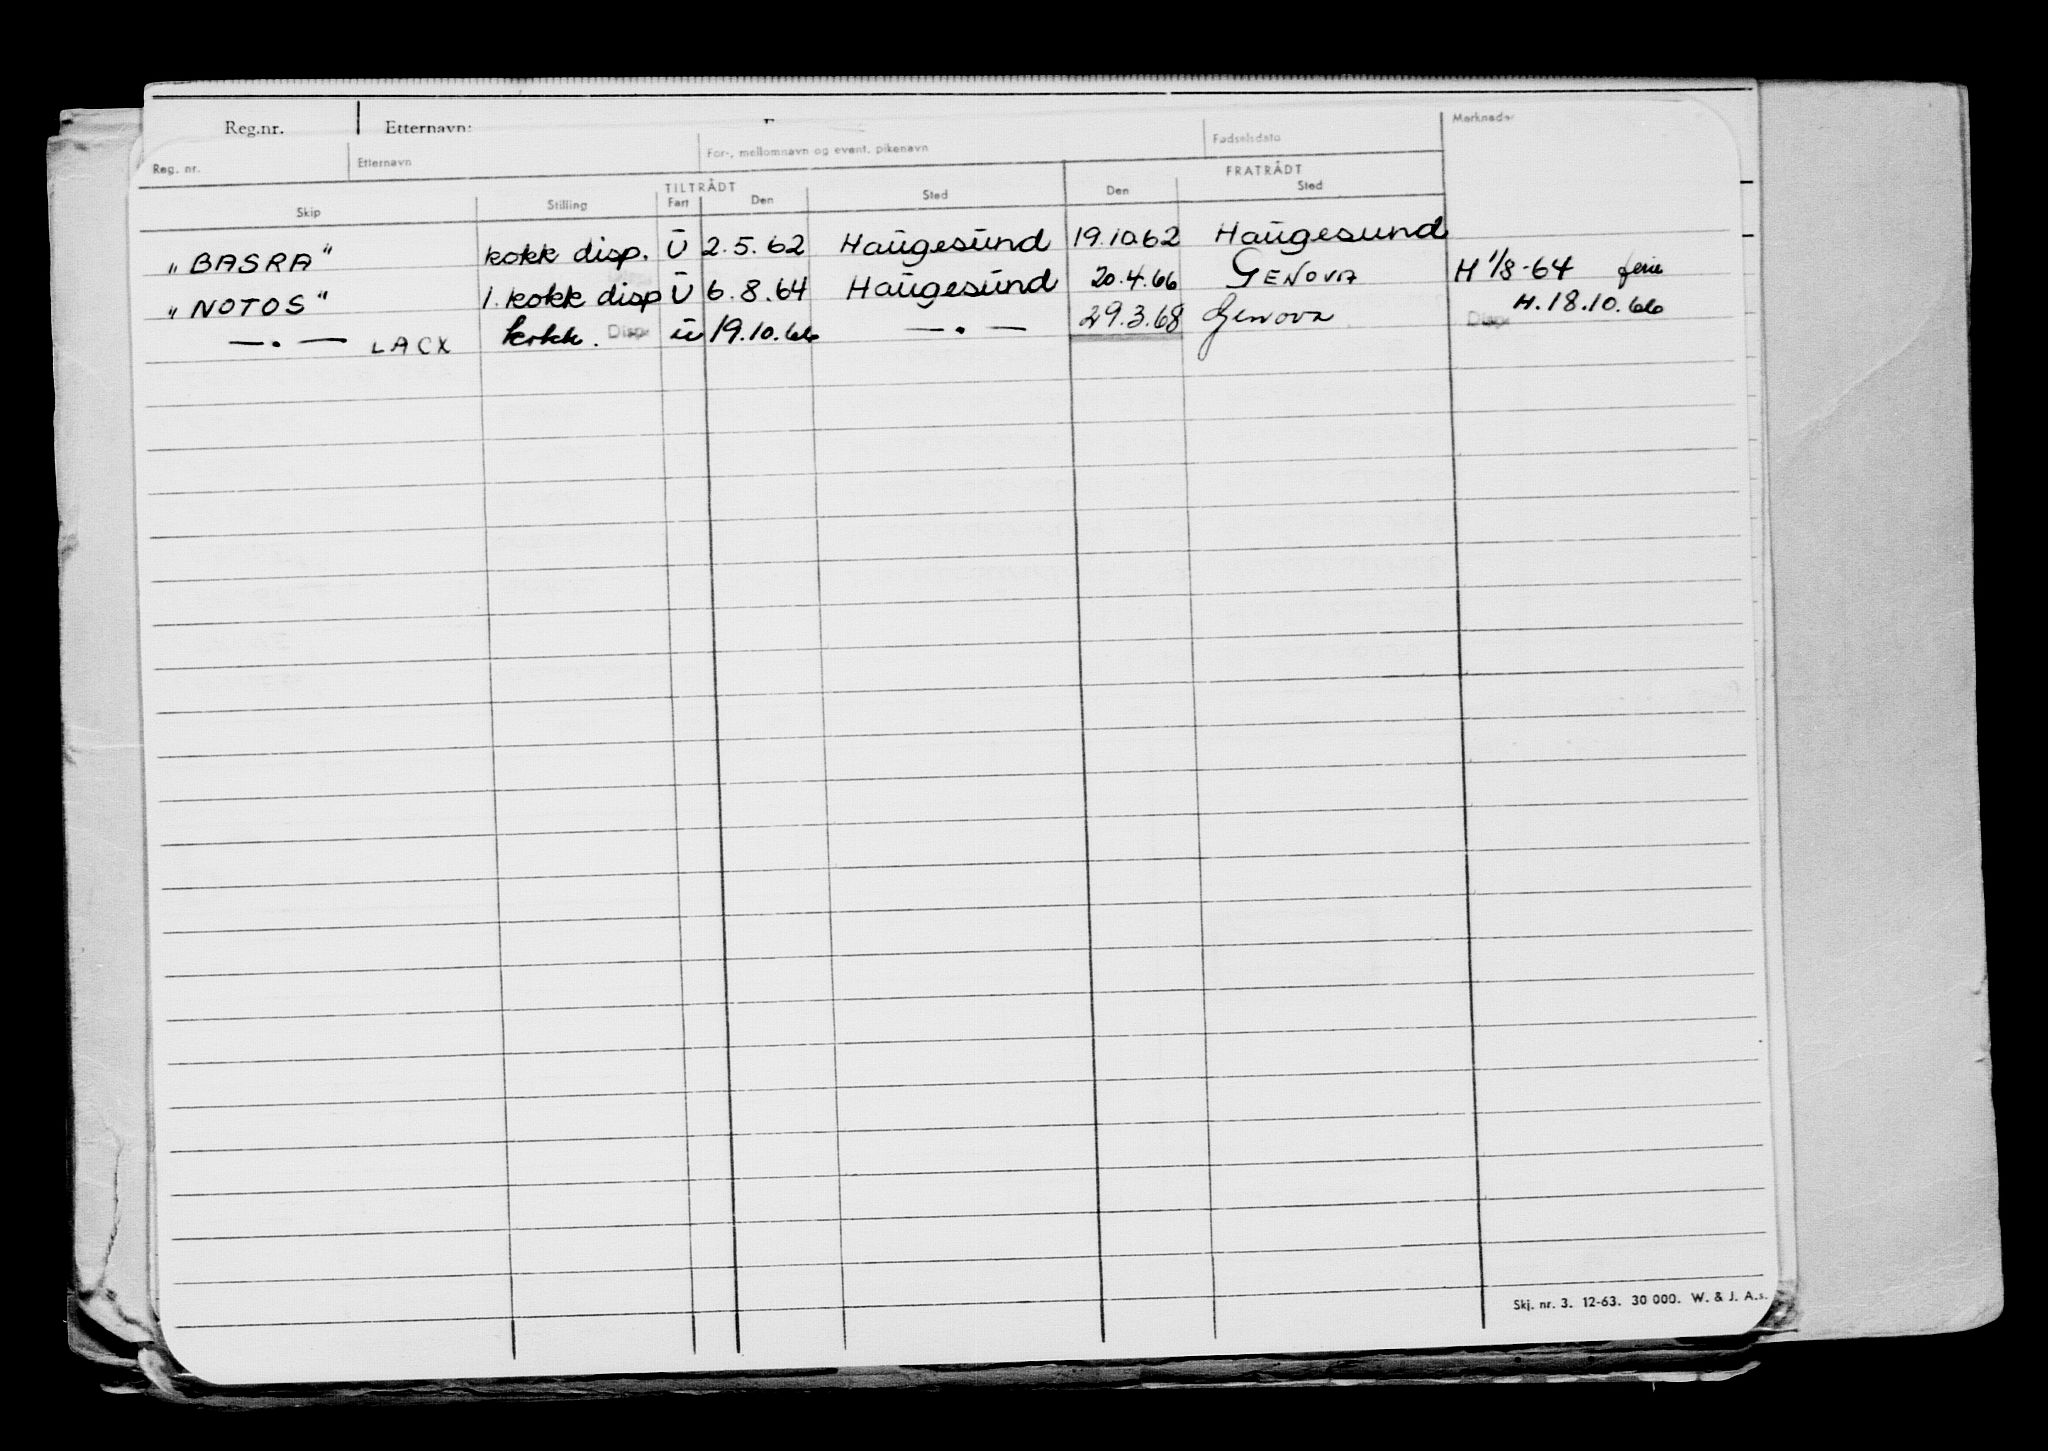 Reg.nr. Etternavn:
Reg. nr. Etternavn For-, mellomnavn og event. pikenavn Fødselsdato Merknader
TILTRÅDT FRATRÅDT
Skip Stilling Fart Den Sted Den Sted
"BASRA" kokk disp. U 2.5.62 Haugesund 19.10.62 Haugesund
"NOTOS" 1. kokk disp U 6.8.64 Haugesund 20.4.66 GENOVA H 1/8-64 ferie
—.— LACX kokk. Disp. u 19.10.66 —.— 29.3.68 Genova Disp. H.18.10.66
Skj. nr. 3. 12-63. 30 000. W. & J. A.s.